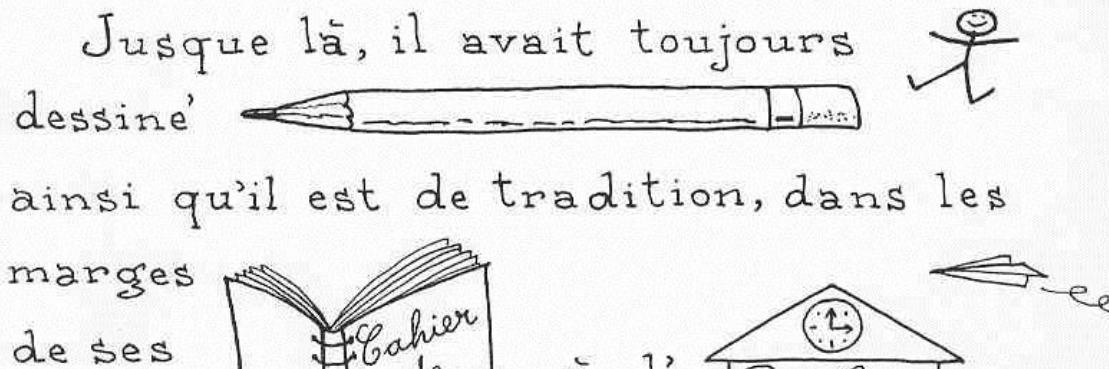 Jusque là, il avait toujours
dessiné
ainsi qu'il est de tradition, dans les
marges
de ses
Cahier
à l'